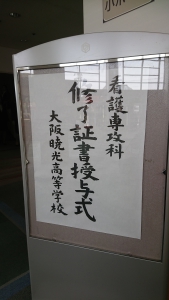 看護専攻科
修了証書授与式
大阪暁光高等学校